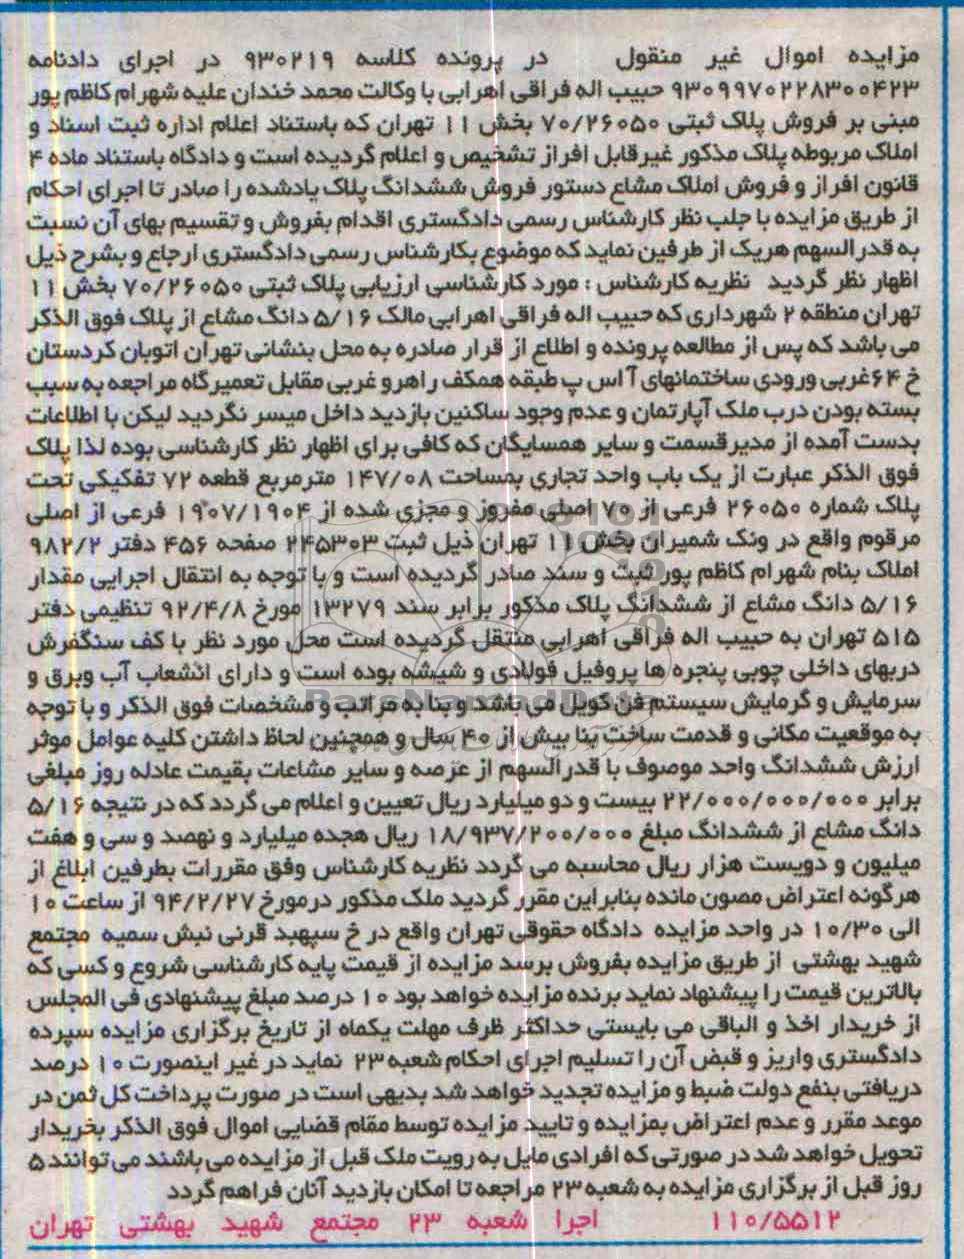 مزایده اموال غیر منقول در پرونده کلاسه ۹۳۰۲۱۹ در اجرای دادنامه
۹۳۰۹۹۷۰۲۲۸۳۰۰۴۲۳ حبیب اله فراقی اهرابی با وکالت محمد خندان علیه شهرام کاظم پور
مبنی بر فروش پلاک ثبتی ۷۰/۲۶۰۵۰ بخش ۱۱ تهران که باستناد اعلام اداره ثبت اسناد و
املاک مربوطه پلاک مذکور غیرقابل افراز تشخیص و اعلام گردیده است و دادگاه باستناد ماده ۴
قانون افراز و فروش املاک مشاع دستور فروش ششدانگ پلاک یادشده را صادر تا اجرای احکام
از طریق مزایده با جلب نظر کارشناس رسمی دادگستری اقدام بفروش و تقسیم بهای آن نسبت
به قدرالسهم هریک از طرفین نماید که موضوع بکارشناس رسمی دادگستری ارجاع و بشرح ذیل
اظهار نظر گردید نظریه کارشناس : مورد کارشناسی ارزیابی پلاک ثبتی ۷۰/۲۶۰۵۰ بخش ۱۱
تهران منطقه ۲ شهرداری که حبیب اله فراقی اهرابی مالک ۵/۱۶ دانگ مشاع از پلاک فوق الذکر
می باشد که پس از مطالعه پرونده و اطلاع از قرار صادره به محل بنشانی تهران اتوبان کردستان
خ ۶۴غربی ورودی ساختمانهای آ اس پ طبقه همکف راهرو غربی مقابل تعمیرگاه مراجعه به سبب
بسته بودن درب ملک آپارتمان و عدم وجود ساکنین بازدید داخل میسر نگردید لیکن با اطلاعات
بدست آمده از مدیرقسمت و سایر همسایگان که کافی برای اظهار نظر کارشناسی بوده لذا پلاک
فوق الذکر عبارت از یک باب واحد تجاری بمساحت ۱۴۷/۰۸ مترمربع قطعه ۷۲ تفکیکی تحت
پلاک شماره ۲۶۰۵۰ فرعی از ۷۰ اصلی مفروز و مجزی شده از ۱۹۰۷/۱۹۰۴ فرعی از اصلی
مرقوم واقع در ونک شمیران بخش ۱۱ تهران ذیل ثبت ۲۴۵۳۰۳ صفحه ۴۵۶ دفتر ۹۸۲/۲
املاک بنام شهرام کاظم پور ثبت و سند صادر گردیده است و با توجه به انتقال اجرایی مقدار
۵/۱۶ دانگ مشاع از ششدانگ پلاک مذکور برابر سند ۱۳۲۷۹ مورخ ۹۲/۴/۸ تنظیمی دفتر
۵۱۵ تهران به حبیب اله فراقی اهرابی منتقل گردیده است محل مورد نظر با کف سنگفرش
دربهای داخلی چوبی پنجره ها پروفیل فولادی و شیشه بوده است و دارای انشعاب آب وبرق و
سرمایش و گرمایش سیستم فن کویل می باشد و بنا به مراتب و مشخصات فوق الذکر و با توجه
به موقعیت مکانی و قدمت ساخت بنا بیش از ۴۰ سال و همچنین لحاظ داشتن کلیه عوامل موثر
ارزش ششدانگ واحد موصوف با قدرالسهم از عرصه و سایر مشاعات بقیمت عادله روز مبلغی
برابر ۲۲/۰۰۰/۰۰۰/۰۰۰ بیست و دو میلیارد ریال تعیین و اعلام می گردد که در نتیجه ۵/۱۶
دانگ مشاع از ششدانگ مبلغ ۱۸/۹۳۷/۲۰۰/۰۰۰ ریال هجده میلیارد و نهصد و سی و هفت
میلیون و دویست هزار ریال محاسبه می گردد نظریه کارشناس وفق مقررات بطرفین ابلاغ از
هرگونه اعتراض مصون مانده بنابراین مقرر گردید ملک مذکور درمورخ ۹۴/۲/۲۷ از ساعت ۱۰
الی ۱۰/۳۰ در واحد مزایده دادگاه حقوقی تهران واقع در خ سپهبد قرنی نبش سمیه مجتمع
شهید بهشتی از طریق مزایده بفروش برسد مزایده از قیمت پایه کارشناسی شروع و کسی که
بالاترین قیمت را پیشنهاد نماید برنده مزایده خواهد بود ۱۰ درصد مبلغ پیشنهادی فی المجلس
از خریدار اخذ و الباقی می بایستی حداکثر ظرف مهلت یکماه از تاریخ برگزاری مزایده سپرده
دادگستری واریز و قبض آن را تسلیم اجرای احکام شعبه ۲۳ نماید در غیر اینصورت ۱۰ درصد
دریافتی بنفع دولت ضبط و مزایده تجدید خواهد شد بدیهی است در صورت پرداخت کل ثمن در
موعد مقرر و عدم اعتراض بمزایده و تایید مزایده توسط مقام قضایی اموال فوق الذکر بخریدار
تحویل خواهد شد در صورتی که افرادی مایل به رویت ملک قبل از مزایده می باشند می توانند ۵
روز قبل از برگزاری مزایده به شعبه ۲۳ مراجعه تا امکان بازدید آنان فراهم گردد
۱۱۰/۵۵۱۲ اجرا شعبه ۲۳ مجتمع شهید بهشتی تهران
ParsNamadData